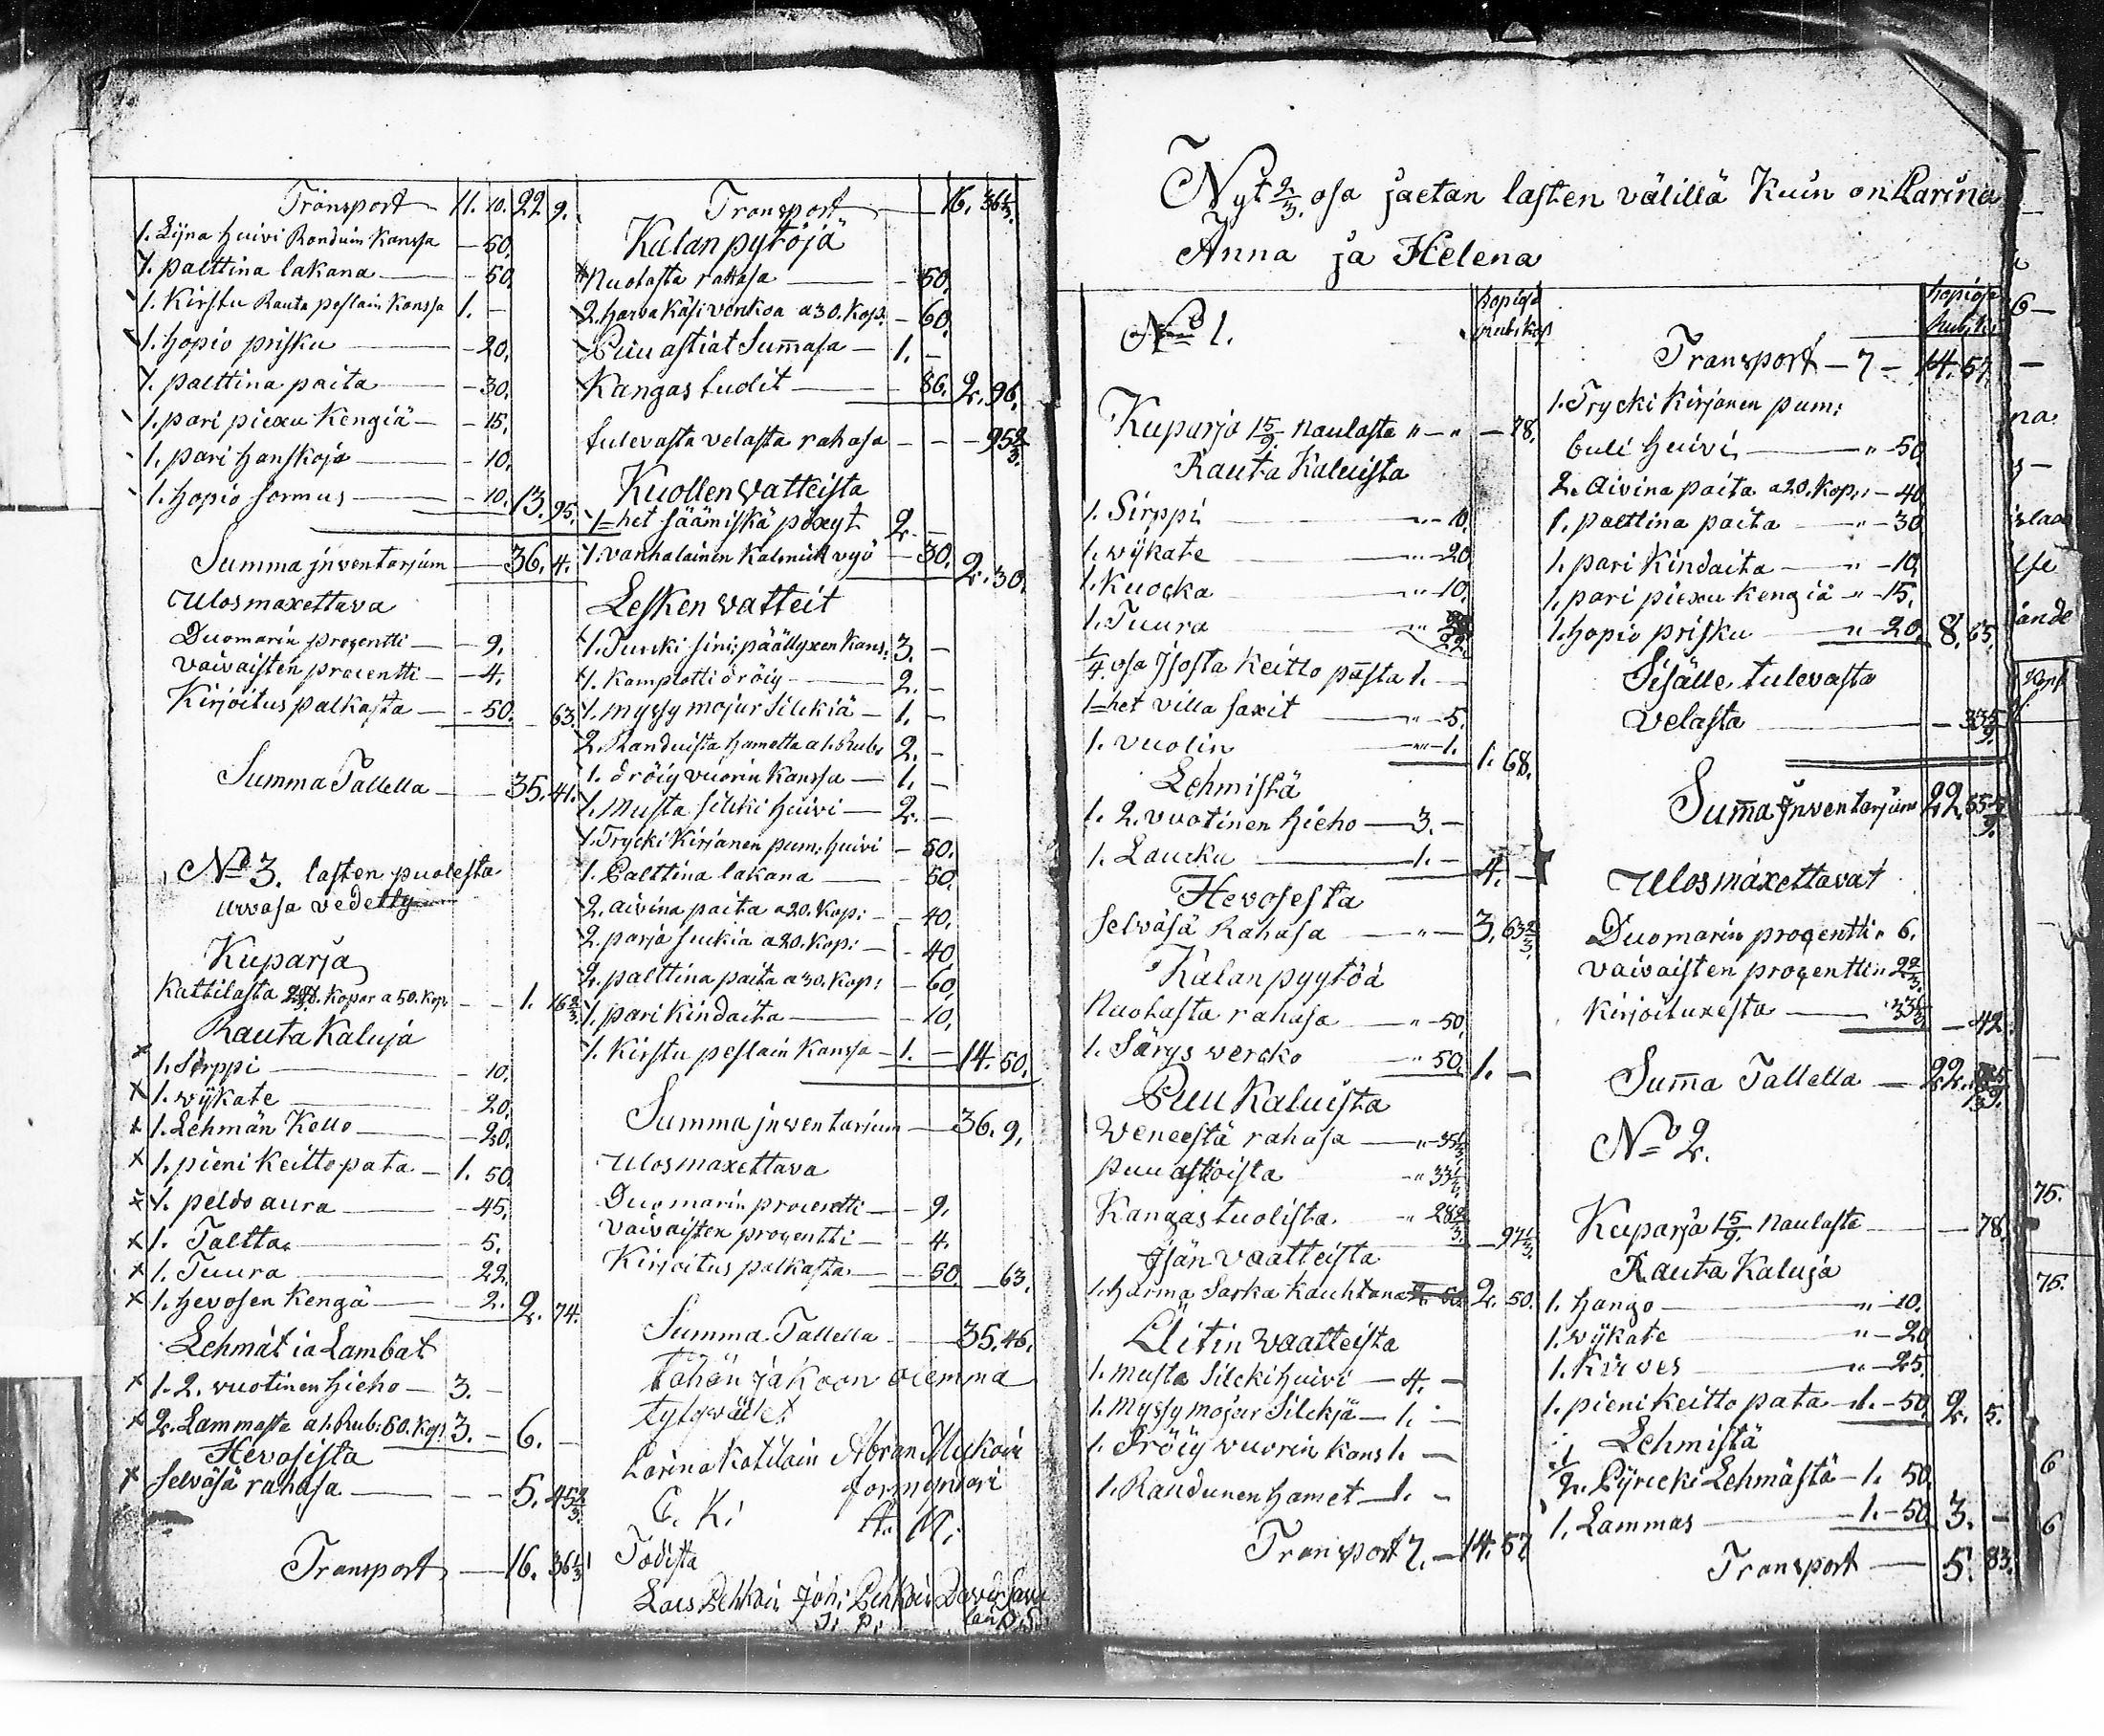 Transport 11. 10. 22 9.
1. Lijna huivi Ronduin Kanssa — 50.
1. palttina lakana — 50.
1. Kirstu Rauta peslain Kanssa 1. —
1. hopio prisku — 20.
1. palttina paita — 30.
1. pari piexu Kengiä — 15.
1. pari hanskoja — 10.
1. hopio sormus — 10. 13. 95.
Summa jnventarjum — 36. 4.
Ulosmaxettava
Duomarin procentti — 9.
vaivaisten procentti — 4.
Kirjoitus palkasta — 50. 63.
Summa Tallella — 35. 41.
No 3. lasten puolesta
arvasa vedetty
Kuparja
Kattilasta kopar a 50. Kop. — 1. 16 2/3.
Rauta Kaluja
1. Sirppi — 10.
1. wijkate — 20.
1. Lehmän Kello — 20.
1. pieni Keitto pata — 1. 50.
1. peldo aura — 45.
1. Taltta — 5.
1. Tuura — 22.
1. hevosen Kengä — 2. 2. 74.
Lehmät ja Lambat
1. 2. vuotinen hieho — 3. —
2. Lammasta a 1. Rub: 50. Kop. 3. — 6. —
Hevosista
selväsä rahasa — 5. 45 2/3.
Transport — 16. 36 1/3
Transport — 16. 36 1/3.
Kalan pytöjä
Nuotasta rahasa — 50.
2. harva Käsi verckoa a 30. Kop. — 60.
Puu astiat Summasa — 1. —
Kangas tuolit — 86. 2. 96.
tulevasta velasta rahasa — 95 2/3.
Kuollen vatteista
1=het säämiskä pöxyt 2. —
1. vanhalainen Kalmink vyö — 30. 2. 30.
Lesken vatteit
1. Turcki sini: päällyxen Kans: 3. —
1. Kamplotti öröig — 2. —
1. myssy mojur Silckiä — 1. —
2. Randuista hametta a 1. Rub. 2. —
1. öröig vuorin Kanssa — 1. —
1. Musta silcki huivi — 2. —
1. Trycki Kirjanen pum: huivi — 50.
1. Palttina lakana — 50.
2. aivina paita a 20. Kop: — 40.
2. parja suckia a 20. Kop: — 40.
2. palttina paita a 30. Kop: — 60.
1. pari Kindaita — 10.
1. Kirstu peslain Kanssa — 1. — 14. 50.
Summa jnventarjum — 36. 9.
Ulosmaxettava
Duomarin procentti — 9.
vaivaisten procentti — 4.
Kirjoitus palkasta — 50. 63.
Summa Tallella — 35. 46.
Tähän jakoon olemma
tytyväiset
Carina Kotilain Abram Mickoin
C. K: formyntäri
A. M:
Todista
Lars Pehkoin Joh: Pehkoin David Sava
J: P: lain D. S.
Nyt 2/3. osa jaetan lasten välillä Kuin on Karina
Anna ja Helena
No 1. hopiasa
Rub. Kop.
Kuparja 1 5/9. naulasta — 78.
Rauta Kaluista
1. Sirppi — 10.
1. wijkate — 20
1. Kuocka — 10.
1. Tuura — 22.
1/4. osa Jsosta Keitto pasta 1. —
1=het villa saxit — 5.
1. vuolin — 1. 1. 68.
Lehmistä
1. 2. vuotinen hieho — 3. —
1. Laucku — 1. — 4. —
Hevosesta
selväsä Rahasa — 3. 63 2/3.
Kalan pyytöä
Nuotasta rahasa — 50.
1. Särys vercko — 50. 1. —
Puu Kaluista
Weneestä rahasa — 35 1/3.
puu astioista — 33 1/3.
Kangas tuolista — 28 2/3. — 97 1/3.
Jsän vaatteista
1. harma Sarka Kauhtana 2. 50.
Äitin Vaatteista
1. musta Silcki huivi — 4. —
1. Myssy mojur Silckjä — 1. —
1. Öröig vuorin Kans 1. —
1. Randunen hamet — 1. —
Transport 7. — 14. 57
hopiasa
Rub. Ko
Transport — 7 — 14. 57.
1. Trycki Kirjanen pum:
buli huivi — 50
2. Aivina paita a 20. Kop: — 40
1. palttina paita — 30
1. pari Kindaita — 10.
1. pari piexu Kengiä — 15.
1. hopio prisku — 20. 8. 65.
Sisälle tulevasta
velasta — 33 5/9.
Summa Jnventarjum 22. 55 5/9.
Ulosmaxettavat
Duomarin procentti 6.
vaivaisten procenttin 2 2/3.
Kirjoituxesta — 33 1/3 — 42.
Summa Tallella — 22. 13 5/9.
No 2.
Kuparja 1 5/9. naulasta — 78.
Rauta Kaluja
1. hango — 10.
1. wijkate — 20
1. Kirves — 25.
1. pieni Keitto pata — 1. — 50. 2. 5.
Lehmistä
1/2. Pyricki Lehmästä — 1. 50.
1. Lammas — 1. — 50 3. —
Transport — 5. 83.